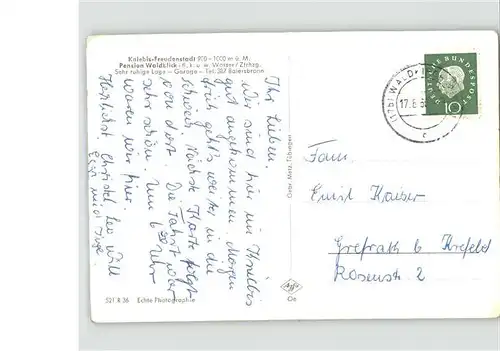 Kniebis-Freudenstadt 900 - 1000 m ü. M.
Pension Waldblick - fl. k. u. w. Wasser / Ztrhzg.
Sehr ruhige Lage - Garage - Tel. 387 Baiersbronn
Ihr Lieben.
Wir sind hier im Kniebis
gut angekommen. Morgen
früh geht's weiter in die
Schweiz. Nächste Karte folgt
von dort. Die Fahrt war
sehr schön. Um 6 30 Uhr
waren wir hier.
Herzlichst Christel, Leo, Willi
und Inge
521 R 36 Echte Photographie
Gebr. Metz, Tübingen
Agfa
DEUTSCHE BUNDESPOST
10
17.8.
c
Fam.
Emil Kaiser
Grefrath b Krefeld
Rosenstr 2